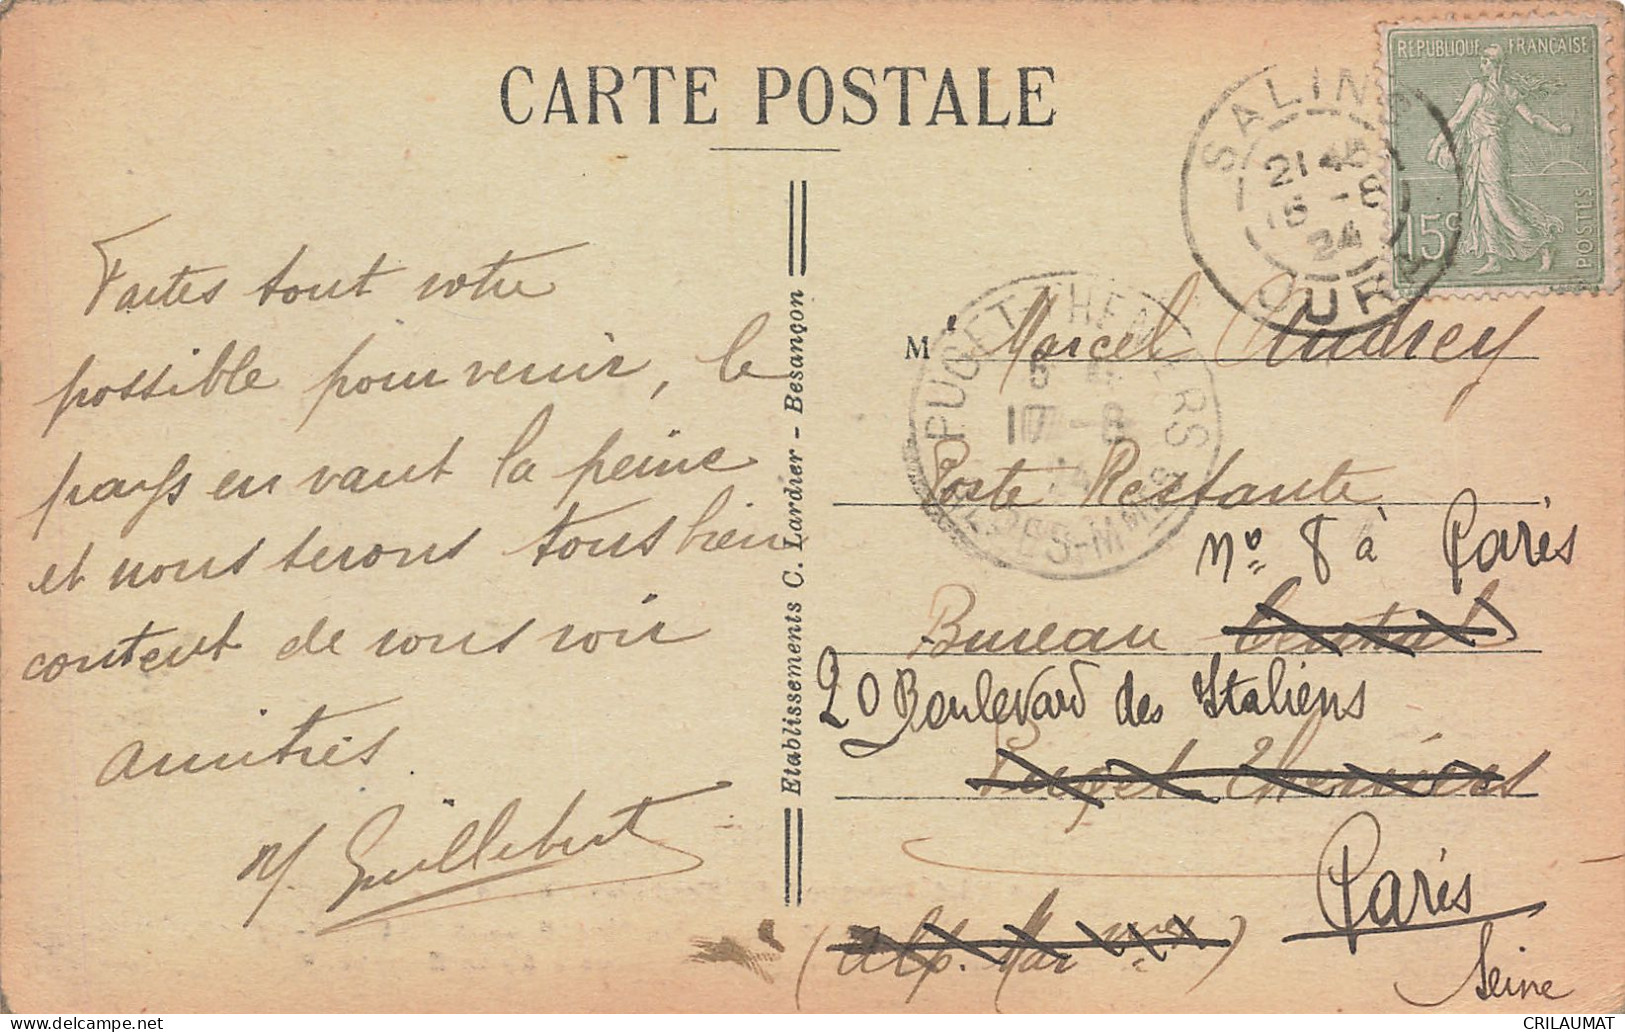 CARTE POSTALE
REPUBLIQUE FRANÇAISE
15c
POSTES
SALINS
21 45
15 -8
24
JURA
Faites tout votre
possible pour venir, le
pays en vaut la peine
et nous serons tous bien
content de vous voir
amitiés
M. Guillebert
Etablissements C. Lardier - Besançon
PUGET-THENIERS
17 -8
ALPES-MMES
M Marcel Audrey
Poste Restante
No 8 à Paris
Bureau Central
20 Boulevard des Italiens
Puget Théniers
Paris
(Alp. Mar mes)
Seine
CRILAUMAT